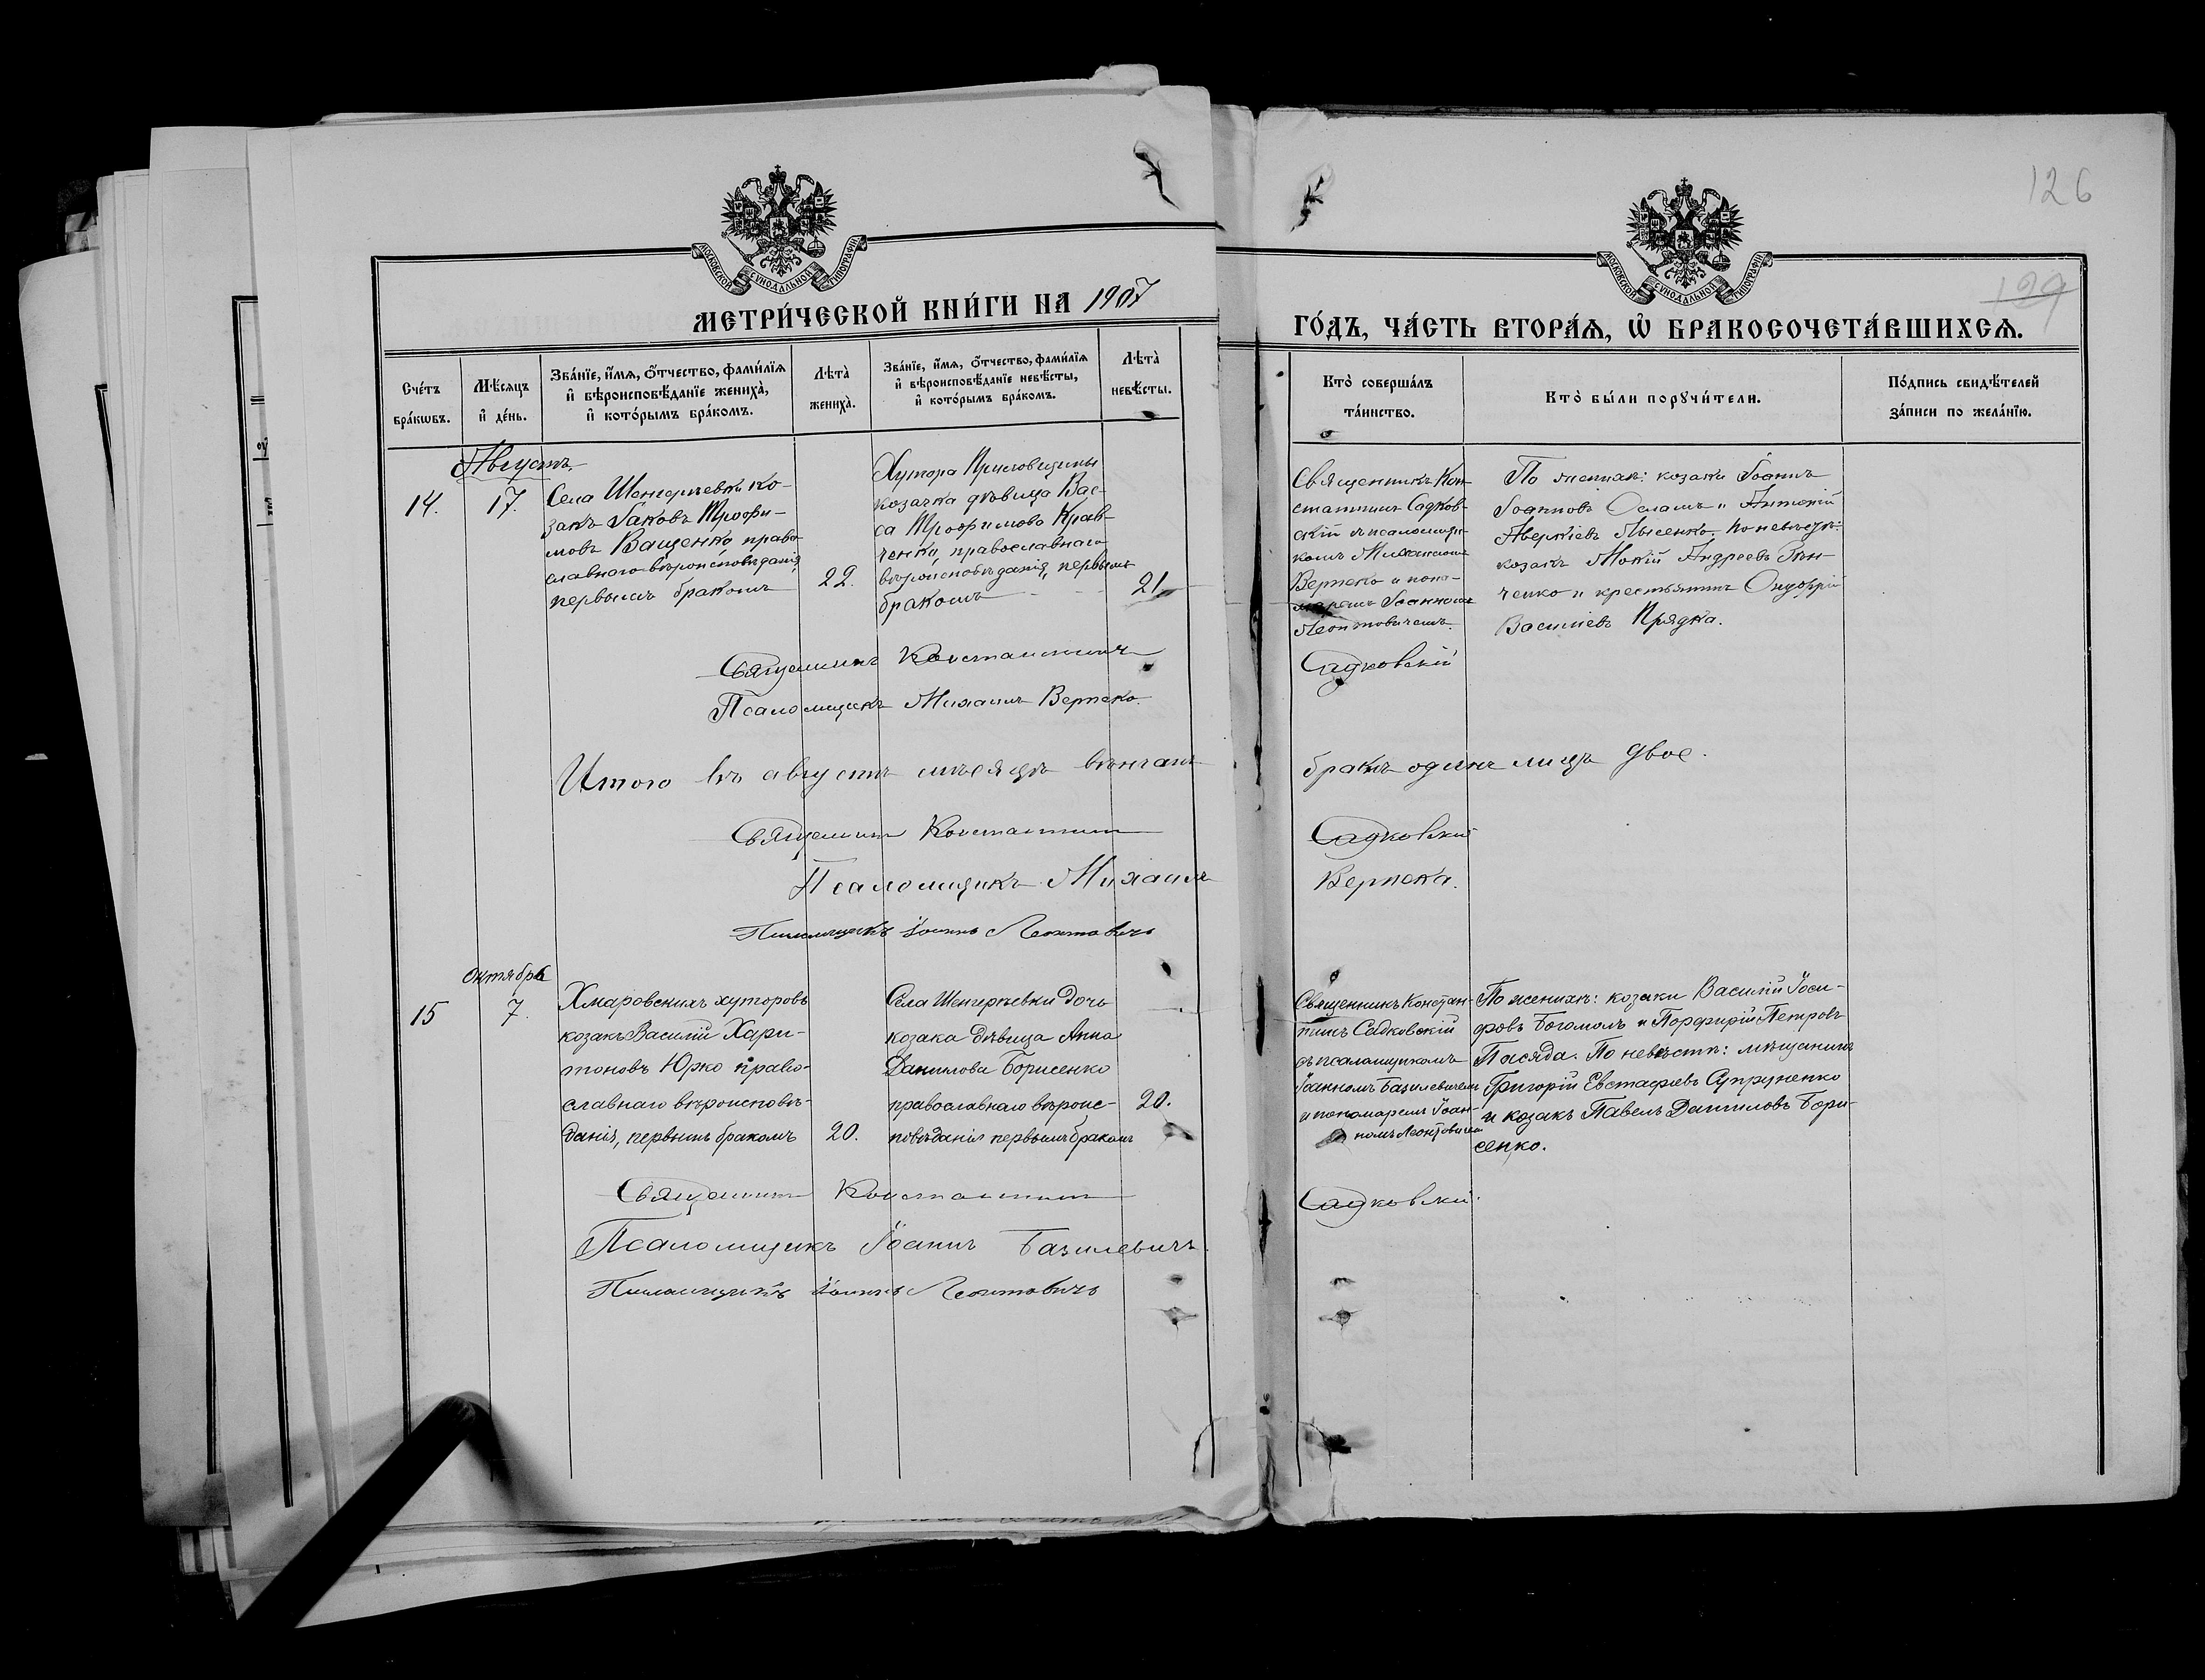 126
МОСКОВСКОЙ СѴНОДАЛЬНОЙ ТИПОГРАФІИ
МОСКОВСКОЙ СѴНОДАЛЬНОЙ ТИПОГРАФІИ
МЕТРИ́ЧЕСКОЙ КНИ́ГИ НА 1907
ГО́ДЪ, ЧА́СТЬ ВТОРА́Ѧ, Ѡ БРАКОСОЧЕТА́ВШИХСѦ.
Сче́тъ бра́кѡвъ.
Мѣ́сяцъ и҆ де́нь.
Зва́нїе, и҆́мѧ, ѻ҆́тчество, фами́лїѧ
и҆ вѣроисповѣ́данїе жениха̀,
и҆ кото́рымъ бра́комъ.
Лѣта̀ жениха̀.
Зва́нїе, и҆́мѧ, ѻ҆́тчество, фами́лїѧ
и҆ вѣроисповѣ́данїе невѣ́сты,
и҆ кото́рымъ бра́комъ.
Лѣта̀ невѣ́сты.
Кто̀ соверша́лъ
та́инство.
Кто̀ бы́ли порꙋчи́тели.
По́дпись свидѣ́телей
за́писи по жела́нїю.
Августъ.
14.
17.
Села Шенгреевки ко-
закъ Іаковъ Трофи-
мовъ Ващенко право
славнаго вѣроисповѣданія,
первымъ бракомъ
22.
Хутора Приловщины
козачка дѣвица Вас-
са Трофимова Крав-
ченко, православнаго
вѣроисповѣданія, первымъ
бракомъ
21
Священникъ Кон-
стантинъ Садков-
скій съ псаломщи-
комъ Михаиломъ
Верпеко и поно-
маремъ Іоанномъ
Леонтовичемъ.
По женихѣ: козаки Іоаннъ
Іоанновъ Осламъ и Антоній
Аверкіевъ Лысенко. По невѣстѣ:
козакъ Мокій Андреевъ
ченко и крестьянинъ Онуфрій
Василіевъ Прядка.
Священникъ Константинъ Садковскій
Псаломщикъ Михаилъ Верпеко.
Итого въ августѣ мѣсяцѣ вѣнчанъ бракъ одинъ лицъ двое.
Священникъ Константинъ Садковскій
Псаломщикъ Михаилъ Верпека.
Псаломщикъ Іоаннъ Леонтовичъ
Октябрь
15
7.
Хмаровскихъ хуторовъ
козакъ Василій Хари-
тоновъ Юрко право-
славнаго вѣроисповѣ-
данія, первымъ бракомъ
20.
Села Шенгреевки дочь
козака дѣвица Анна
Данилова Борисенко
православнаго вѣроис-
повѣданія первымъ бракомъ
20.
Священникъ Констан-
тинъ Садковскій
съ псаломщикомъ
Іоанномъ Базилевичемъ
и пономаремъ Іоан-
номъ Леонтовичемъ
По женихѣ: козаки Василій Іоси-
фовъ Богомолъ и Порфирій Петровъ
Пасяда. По невѣстѣ: мѣщанинъ
Григорій Евстафіевъ Супруненко
и козакъ Павелъ Даниловъ Бори-
сенко.
Священникъ Константинъ Садковскій.
Псаломщикъ Іоаннъ Базилевичъ.
Псаломщикъ Іоаннъ Леонтовичъ